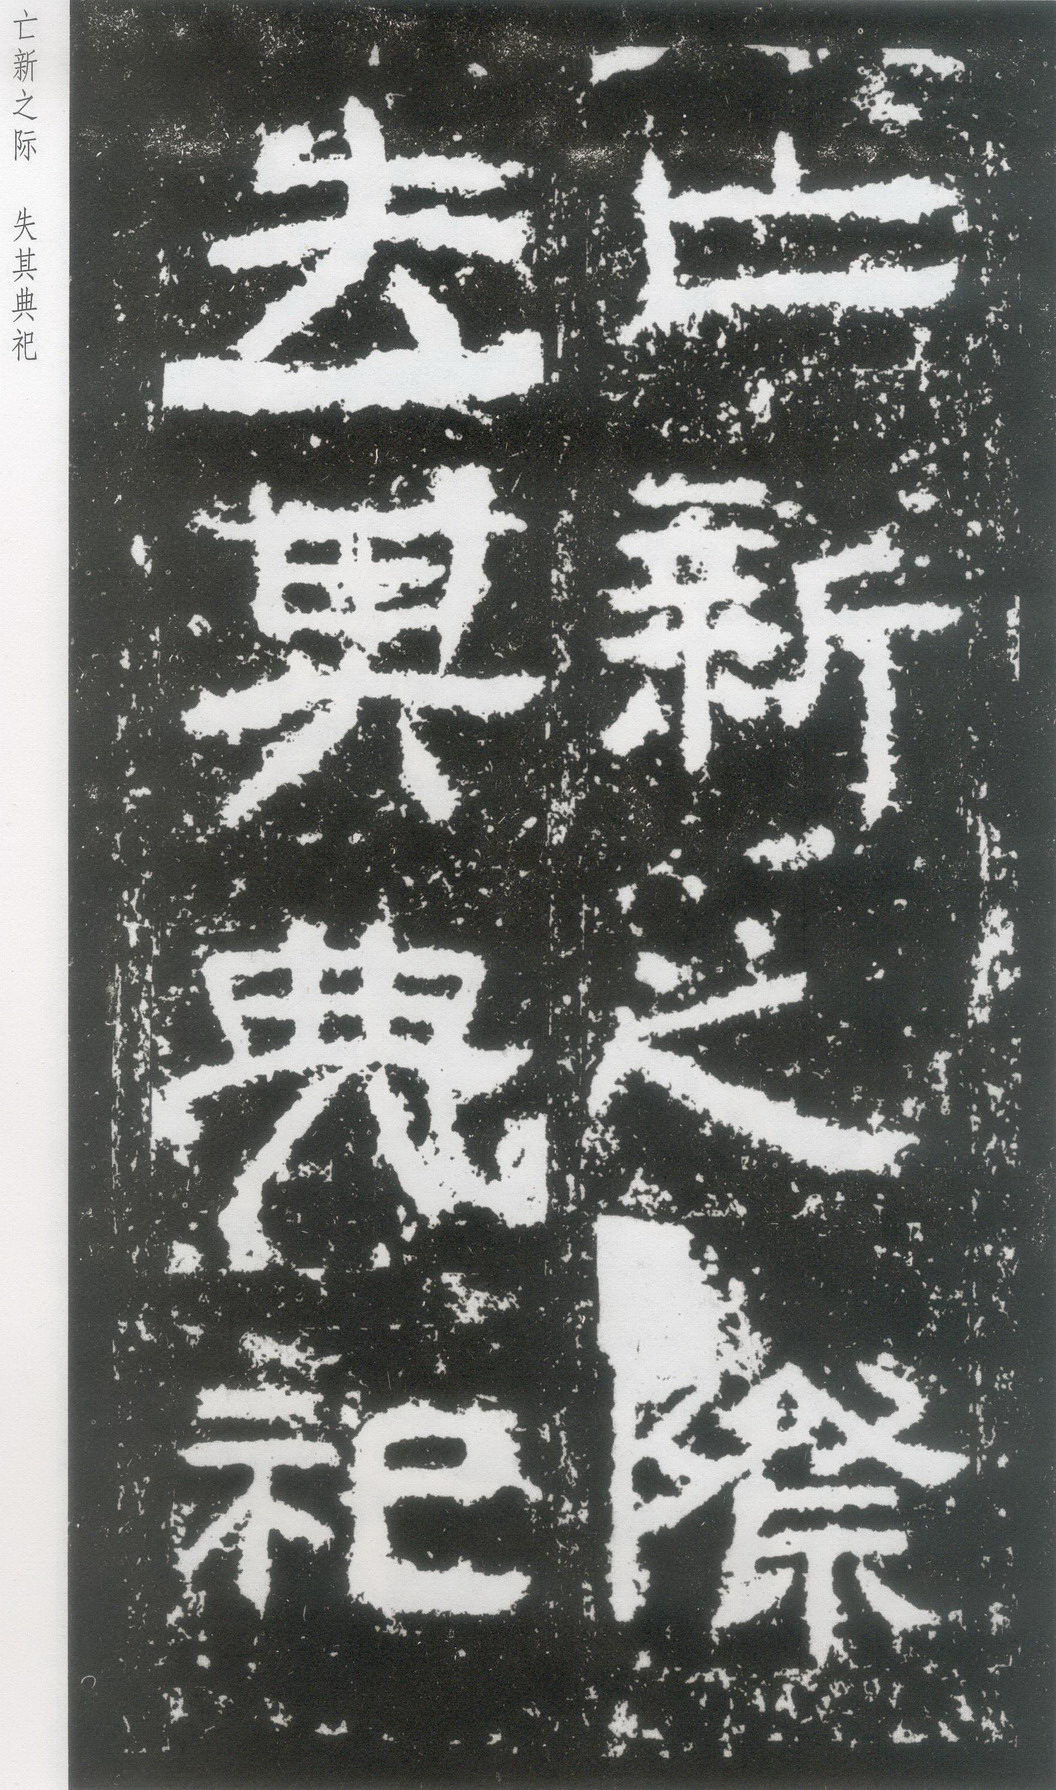 亡新之際
失其典祀
亡新之际 失其典祀